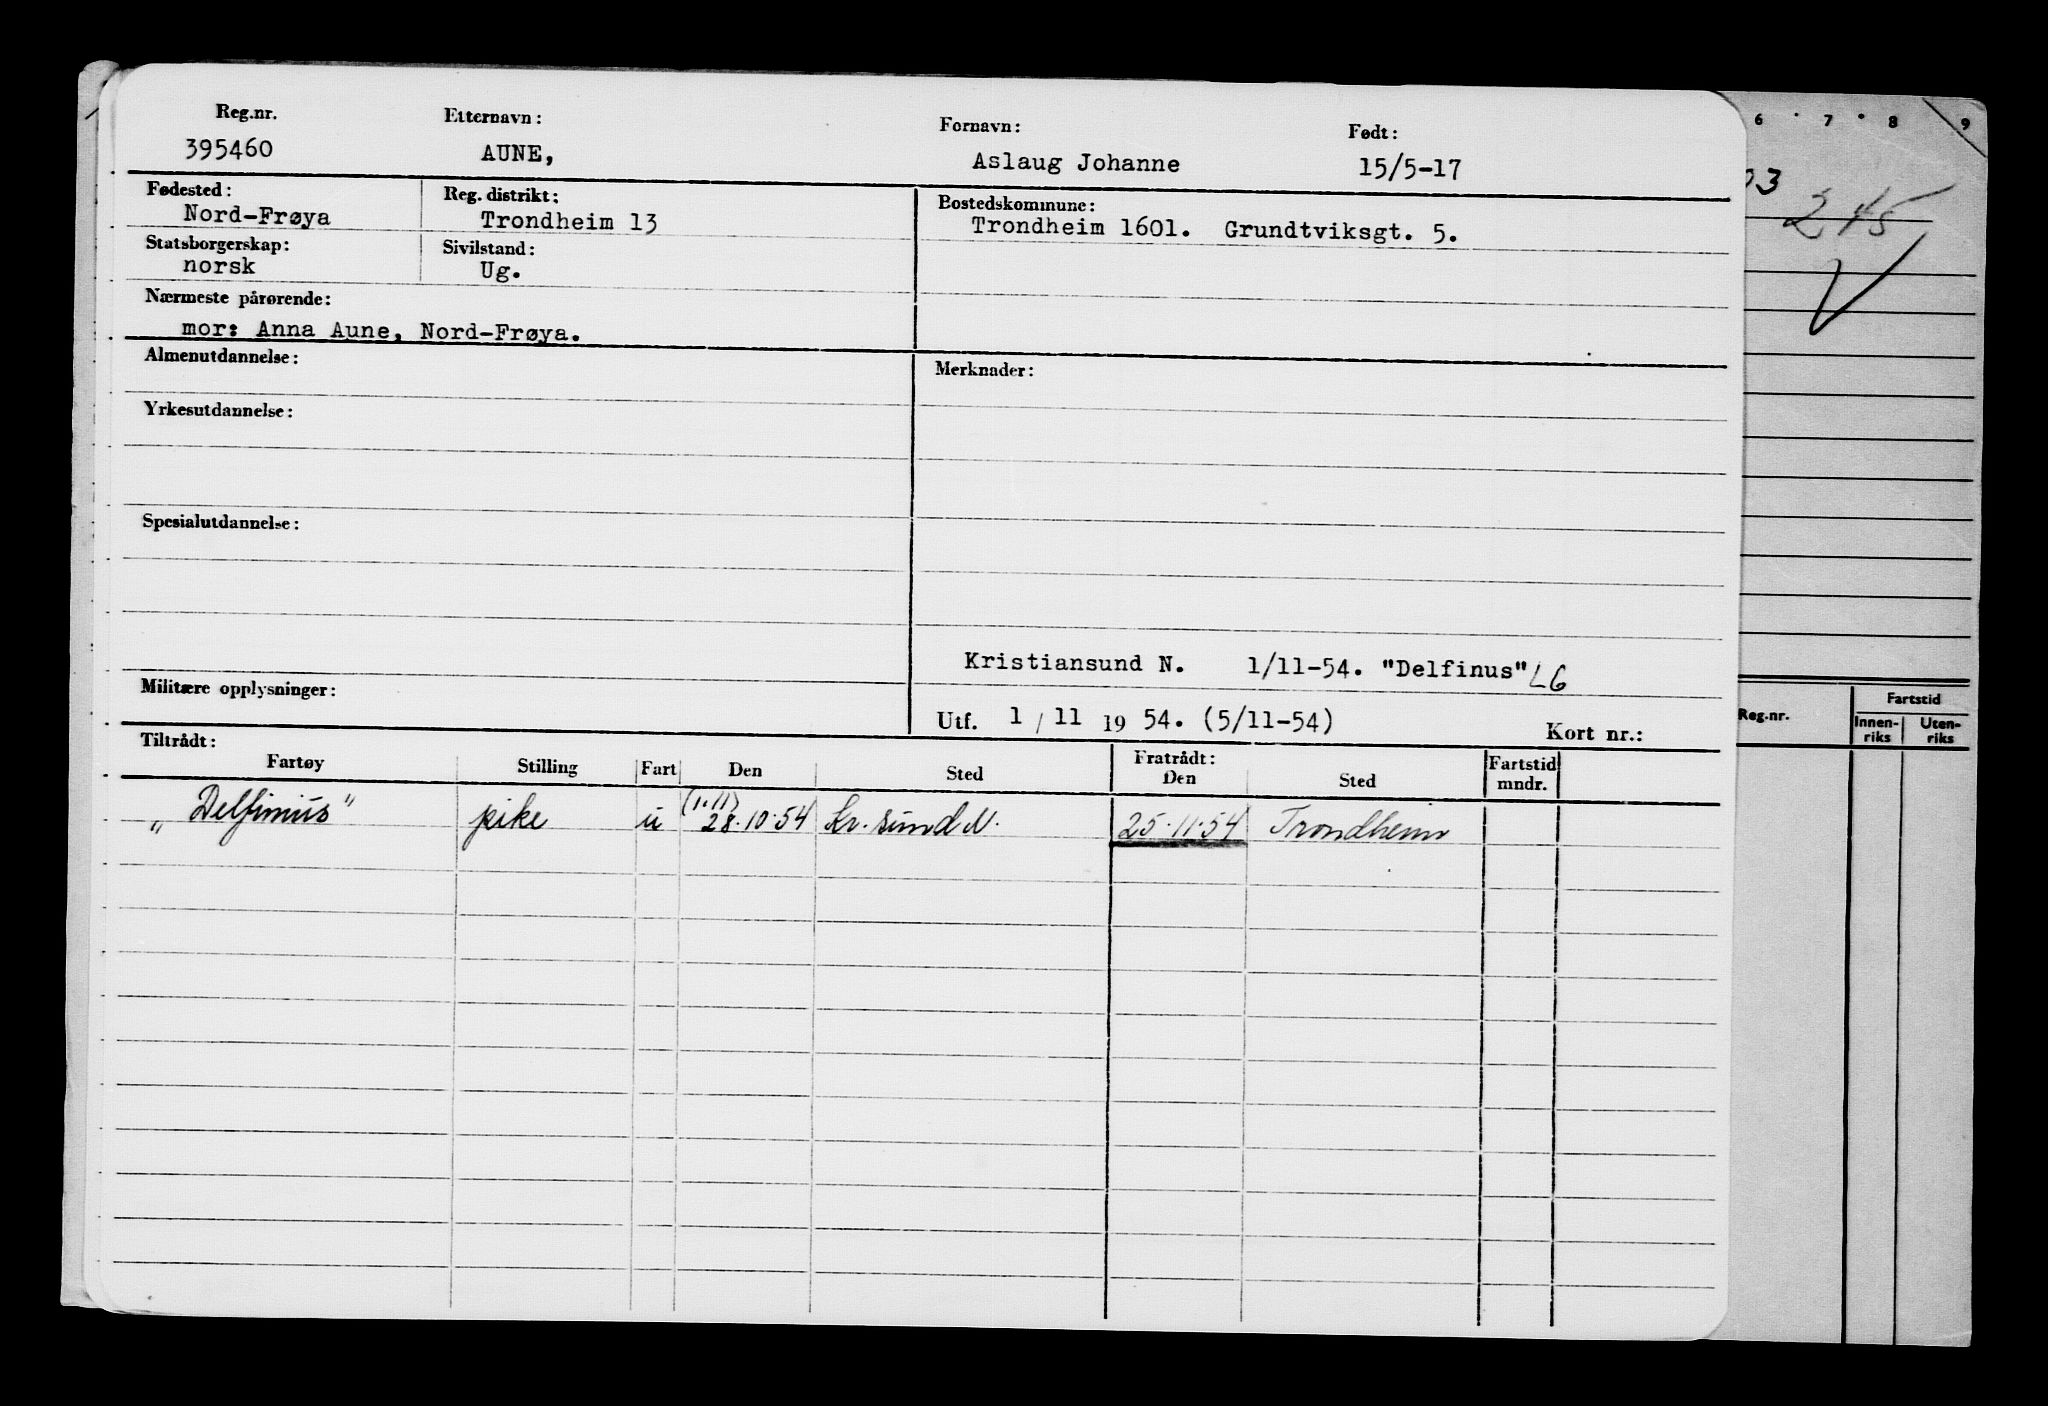 Reg.nr. Etternavn: Fornavn: Født:
395460 AUNE, Aslaug Johanne 15/5-17
Fødested: Reg. distrikt: Bostedskommune:
Nord-Frøya Trondheim 13 Trondheim 1601. Grundtviksgt. 5.
Statsborgerskap: Sivilstand:
norsk Ug.
Nærmeste pårørende:
mor: Anna Aune, Nord-Frøya.
Almenutdannelse: Merknader:
Yrkesutdannelse:
Spesialutdannelse:
Kristiansund N. 1/11-54. "Delfinus" LG
Militære opplysninger:
Utf. 1/11 1954. (5/11-54) Kort nr.:
Tiltrådt: Fratrådt:
Fartøy Stilling Fart Den Sted Den Sted Fartstid mndr.
(1.11)
"Delfinus" pike u 28.10.54 Kr.sund N. 25.11.54 Trondheim
6 7 8 9
03
245
Reg.nr. Fartstid
Innen- Uten-
riks riks